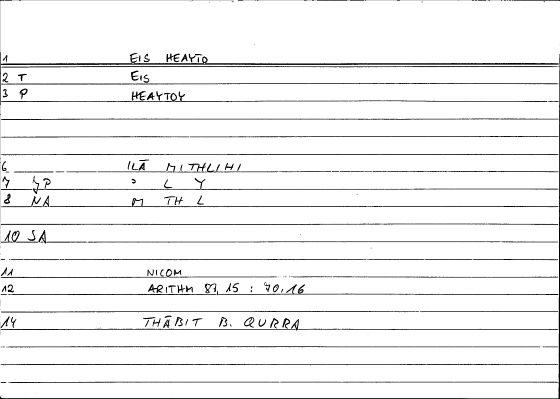 1 EIS HEAYTO
2 T EIS
3 P HEAYTOY
6 ILĀ MITHLIHI
7 JP ʾ L Y
8 NA M TH L
10 SA
11 NICOM
12 ARITHM 83, 15 : 70,16
14 THĀBIT B. QURRA